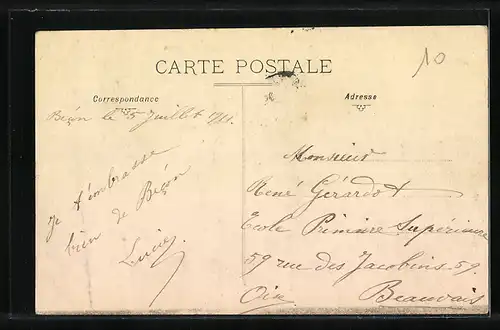 CARTE POSTALE
Correspondance
Adresse
10
Beçon le 5 Juillet 1911.
Je t'embrasse
bien de Beçon
Lucie
Monsieur
René Gérardot
Ecole Primaire Supérieure
59 rue des Jacobins 59.
Oise Beauvais